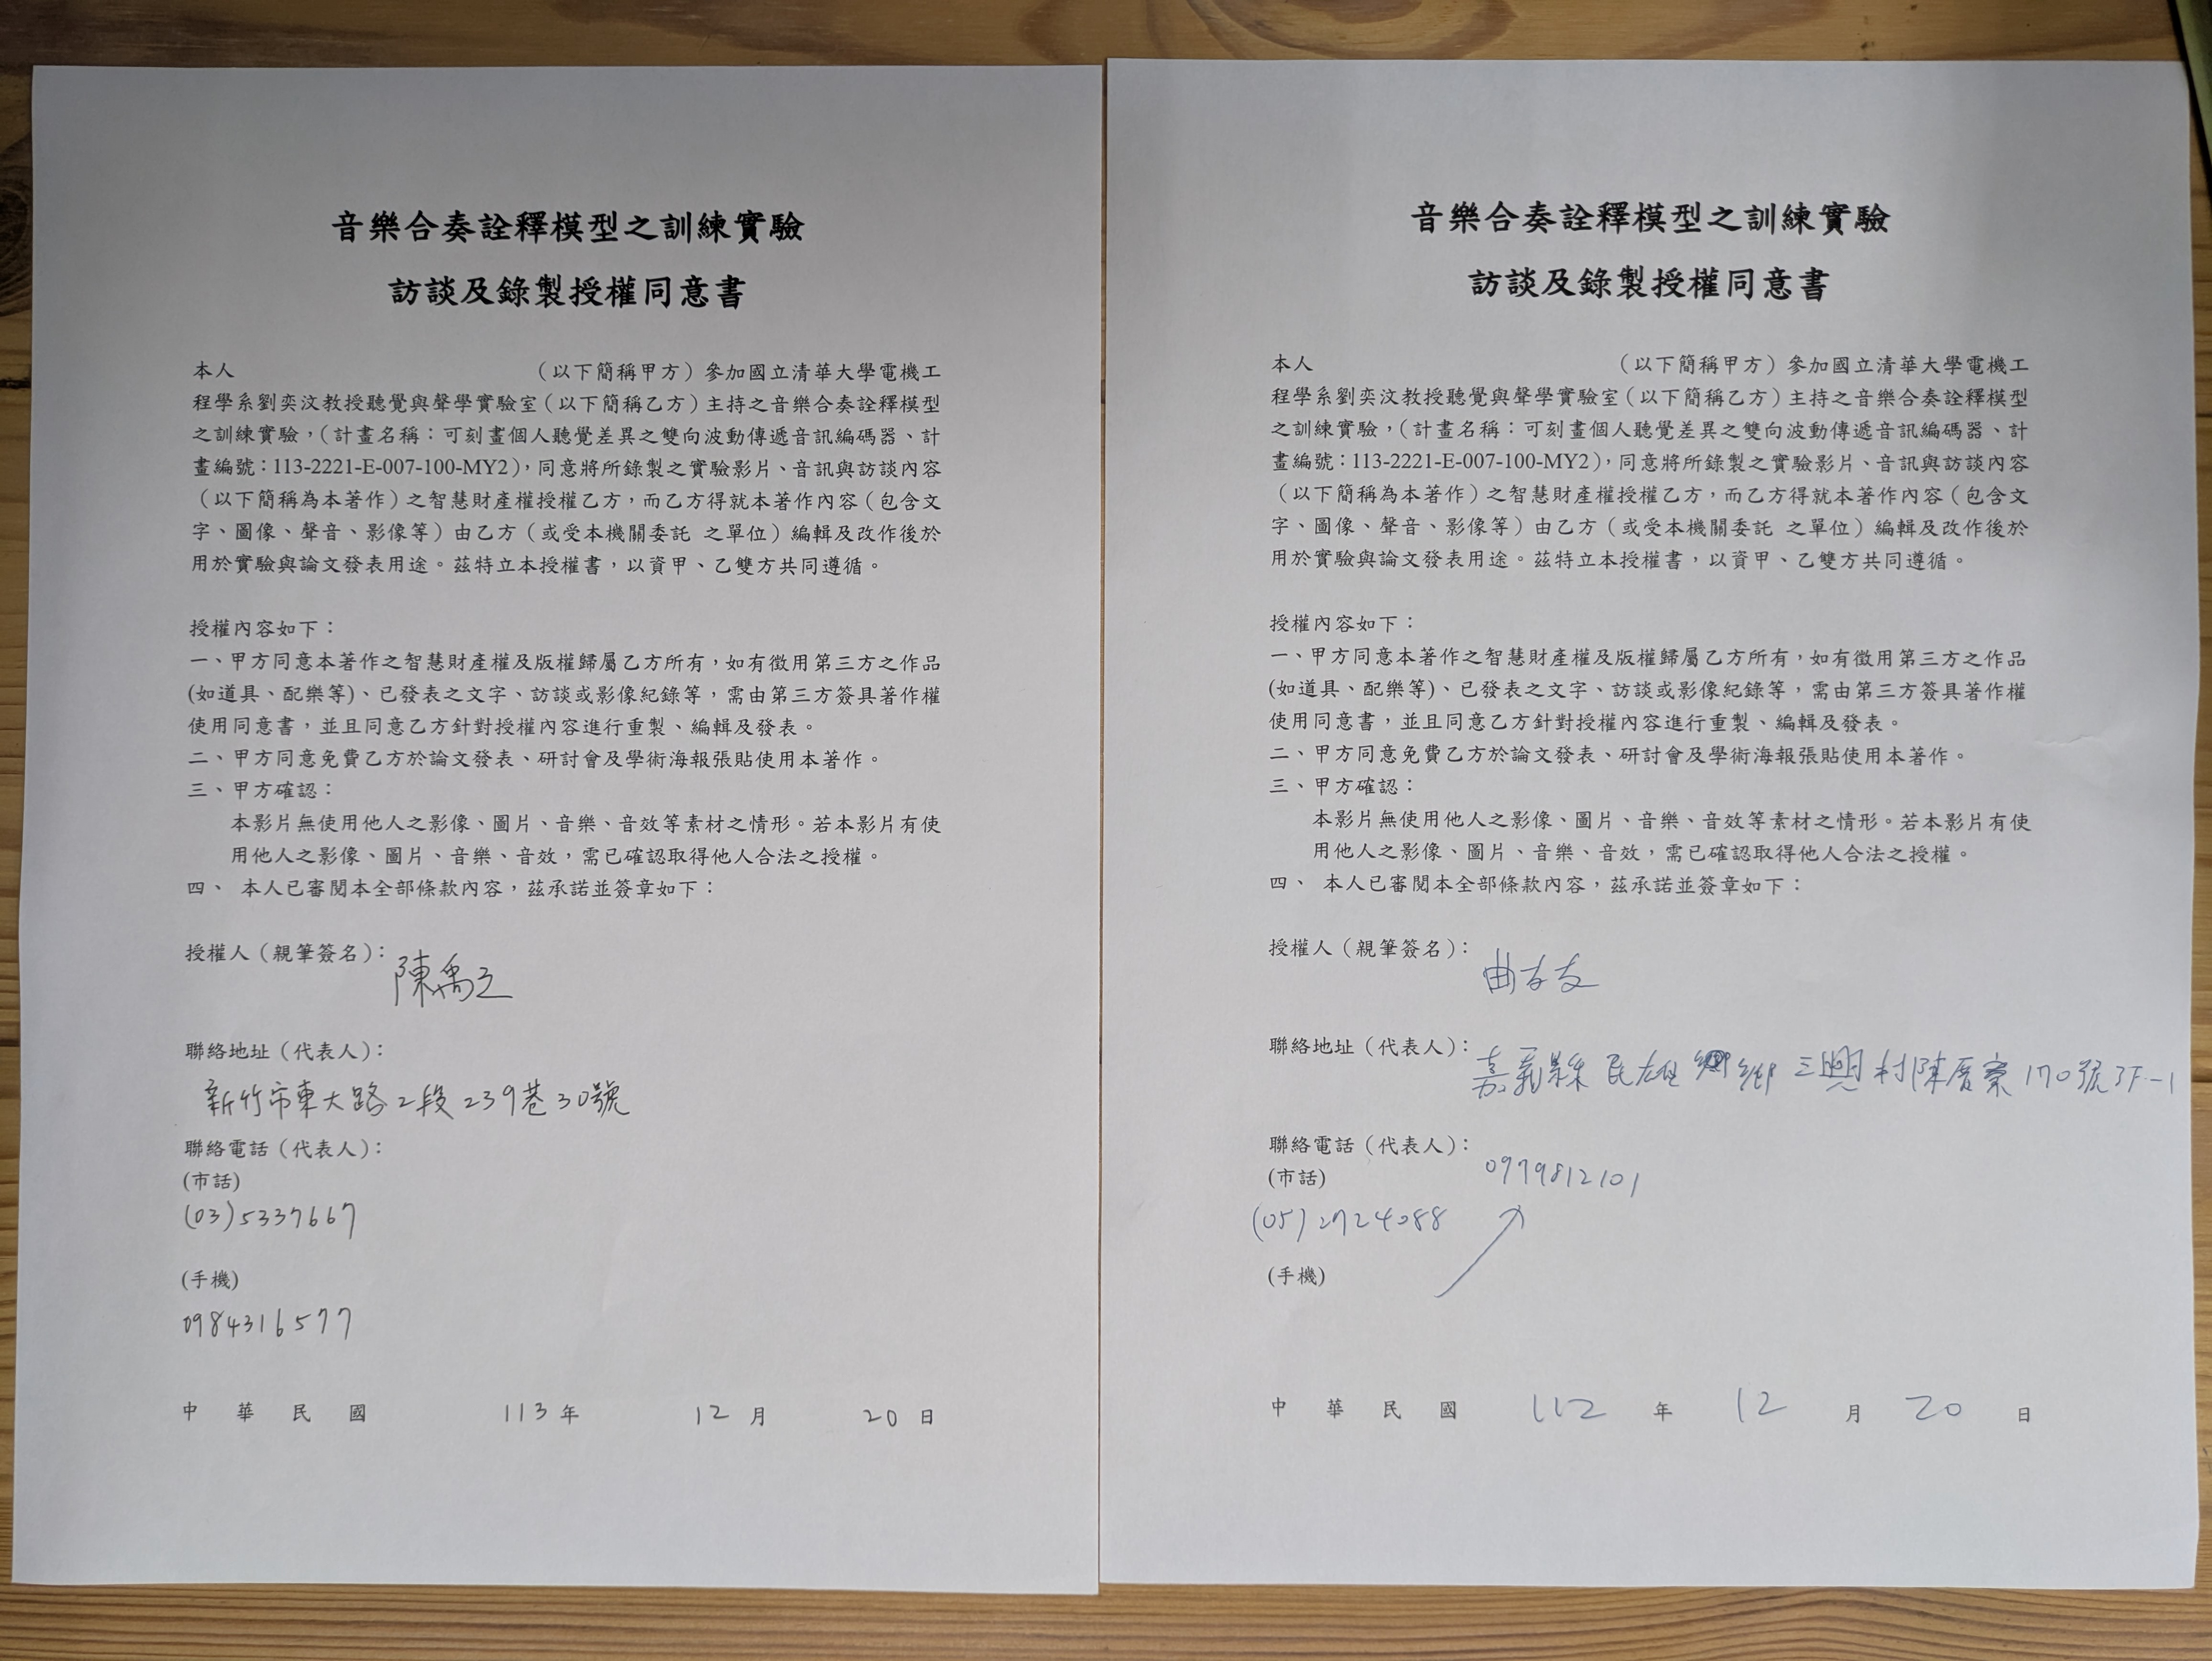 音樂合奏詮釋模型之訓練實驗
訪談及錄製授權同意書
本人 （以下簡稱甲方）參加國立清華大學電機工
程學系劉奕汶教授聽覺與聲學實驗室（以下簡稱乙方）主持之音樂合奏詮釋模型
之訓練實驗，（計畫名稱：可刻畫個人聽覺差異之雙向波動傳遞音訊編碼器、計
畫編號：113-2221-E-007-100-MY2），同意將所錄製之實驗影片、音訊與訪談內容
（以下簡稱為本著作）之智慧財產權授權乙方，而乙方得就本著作內容（包含文
字、圖像、聲音、影像等）由乙方（或受本機關委託 之單位）編輯及改作後於
用於實驗與論文發表用途。茲特立本授權書，以資甲、乙雙方共同遵循。
授權內容如下：
一、甲方同意本著作之智慧財產權及版權歸屬乙方所有，如有徵用第三方之作品
(如道具、配樂等)、已發表之文字、訪談或影像紀錄等，需由第三方簽具著作權
使用同意書，並且同意乙方針對授權內容進行重製、編輯及發表。
二、甲方同意免費乙方於論文發表、研討會及學術海報張貼使用本著作。
三、甲方確認：
本影片無使用他人之影像、圖片、音樂、音效等素材之情形。若本影片有使
用他人之影像、圖片、音樂、音效，需已確認取得他人合法之授權。
四、 本人已審閱本全部條款內容，茲承諾並簽章如下：
授權人（親筆簽名）：
陳禹立
聯絡地址（代表人）：
新竹市東大路2段239巷30號
聯絡電話（代表人）：
(市話)
(03)5337667
(手機)
0984316577
中 華 民 國 113年 12月 20日
音樂合奏詮釋模型之訓練實驗
訪談及錄製授權同意書
本人 （以下簡稱甲方）參加國立清華大學電機工
程學系劉奕汶教授聽覺與聲學實驗室（以下簡稱乙方）主持之音樂合奏詮釋模型
之訓練實驗，（計畫名稱：可刻畫個人聽覺差異之雙向波動傳遞音訊編碼器、計
畫編號：113-2221-E-007-100-MY2），同意將所錄製之實驗影片、音訊與訪談內容
（以下簡稱為本著作）之智慧財產權授權乙方，而乙方得就本著作內容（包含文
字、圖像、聲音、影像等）由乙方（或受本機關委託 之單位）編輯及改作後於
用於實驗與論文發表用途。茲特立本授權書，以資甲、乙雙方共同遵循。
授權內容如下：
一、甲方同意本著作之智慧財產權及版權歸屬乙方所有，如有徵用第三方之作品
(如道具、配樂等)、已發表之文字、訪談或影像紀錄等，需由第三方簽具著作權
使用同意書，並且同意乙方針對授權內容進行重製、編輯及發表。
二、甲方同意免費乙方於論文發表、研討會及學術海報張貼使用本著作。
三、甲方確認：
本影片無使用他人之影像、圖片、音樂、音效等素材之情形。若本影片有使
用他人之影像、圖片、音樂、音效，需已確認取得他人合法之授權。
四、 本人已審閱本全部條款內容，茲承諾並簽章如下：
授權人（親筆簽名）：
曲友友
聯絡地址（代表人）：
嘉義縣民雄鄉三興村陳厝寮170號3F-1
聯絡電話（代表人）：
0979812101
(市話)
(05)2724088
(手機)
中 華 民 國 112 年 12 月 20 日